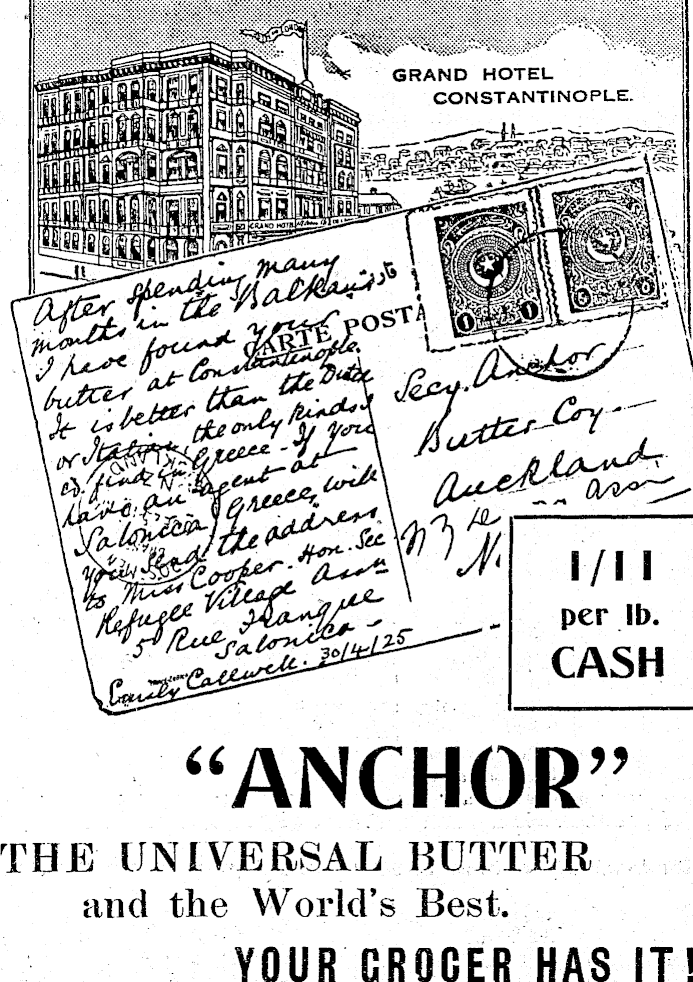 GRAND HOTEL
CONSTANTINOPLE.
GRAND HOTEL
CARTE POSTA
After spending many
months in the Balkans
I have found your
butter at Constantinople.
It is better than the Dutch
or Italian, the only kinds I
cd. find in Greece - If you
have an agent at
Salonica Greece, will
you send the address
to Miss Cooper. Hon. Sec
Refugee Village Assn
5 Rue Franque
Salonica -
Emily Callwell. 30/4/25
Secy. Anchor
Butter Coy.
Auckland
N.
1/11
per lb.
CASH
"ANCHOR"
THE UNIVERSAL BUTTER
and the World's Best.
YOUR GROCER HAS IT!